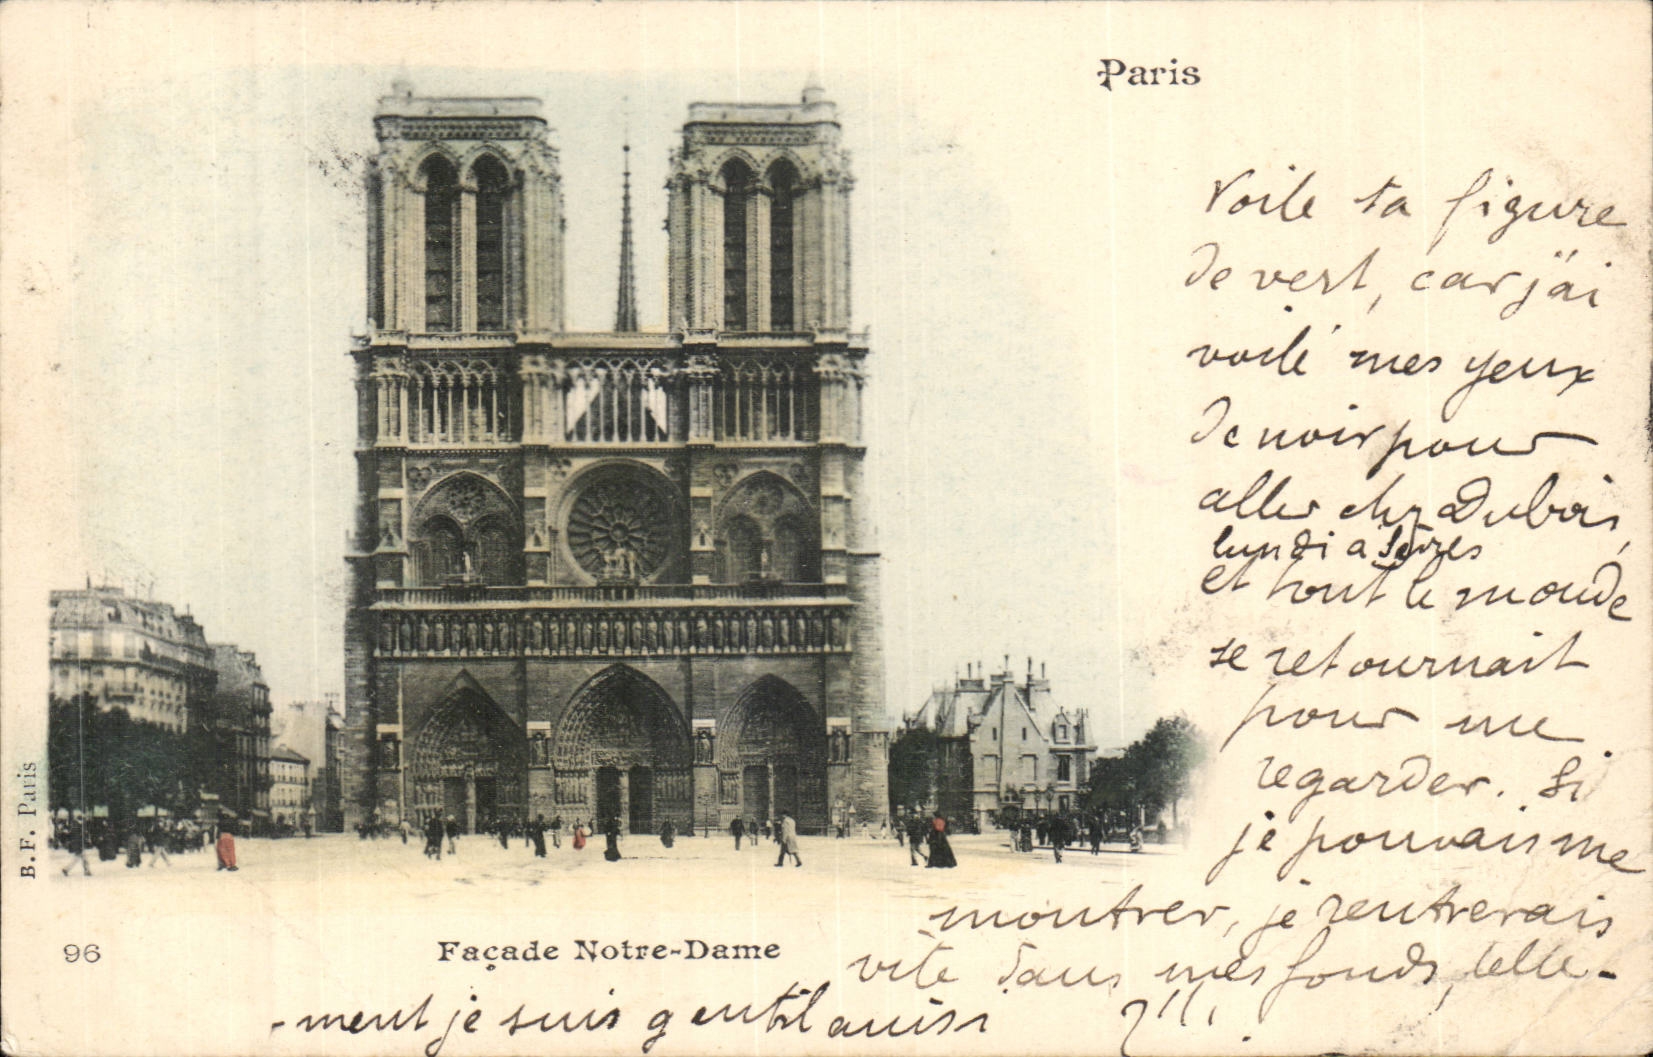 Paris
Voile ta figure
de vert, car j'ai
voilé mes yeux
de noir pour
aller chez Dubois,
lundi a Sèvres
et tout le monde
se retournait
pour me
regarder. Si
je pouvais me
montrer, je rentrerais
vite dans mes fonds, telle-
-ment je suis gentil ainsi !!!
B.F. Paris
96
Façade Notre-Dame